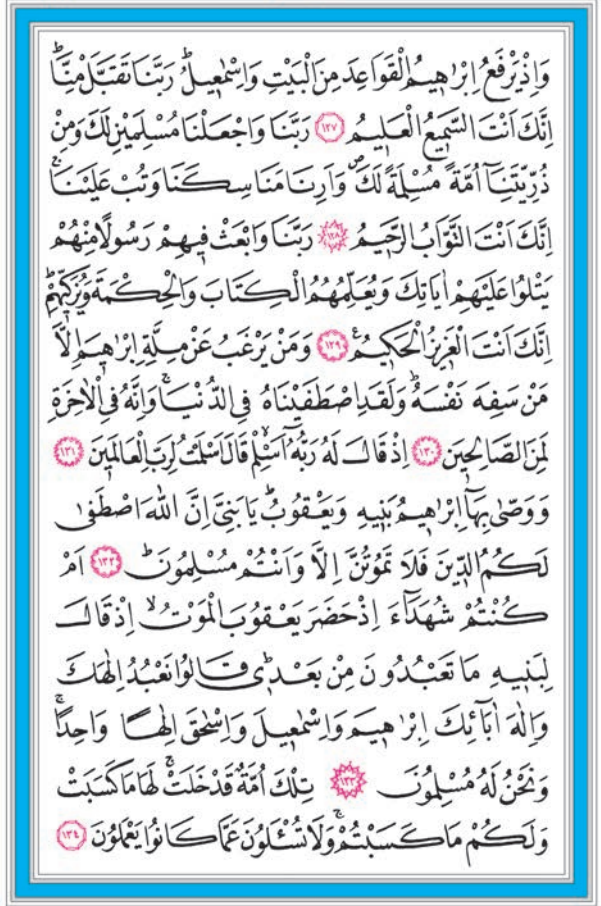 وَاِذْ يَرْفَعُ اِبْرٰهٖيمُ الْقَوَاعِدَ مِنَ الْبَيْتِ وَاِسْمٰعٖيلُۜ رَبَّنَا تَقَبَّلْ مِنَّاۜ
اِنَّكَ اَنْتَ السَّمٖيعُ الْعَلٖيمُ ﴿١٢٧﴾ رَبَّنَا وَاجْعَلْنَا مُسْلِمَيْنِ لَكَ وَمِنْ
ذُرِّيَّتِنَٓا اُمَّةً مُسْلِمَةً لَكَۖ وَاَرِنَا مَنَاسِكَنَا وَتُبْ عَلَيْنَاۚ
اِنَّكَ اَنْتَ التَّوَّابُ الرَّحٖيمُ ﴿١٢٨﴾ رَبَّنَا وَابْعَثْ فٖيهِمْ رَسُولًا مِنْهُمْ
يَتْلُوا عَلَيْهِمْ اٰيَاتِكَ وَيُعَلِّمُهُمُ الْكِتَابَ وَالْحِكْمَةَ وَيُزَكّٖيهِمْۜ
اِنَّكَ اَنْتَ الْعَزٖيزُ الْحَكٖيمُ ﴿١٢٩﴾ وَمَنْ يَرْغَبُ عَنْ مِلَّةِ اِبْرٰهٖيمَ اِلَّا
مَنْ سَفِهَ نَفْسَهُۜ وَلَقَدِ اصْطَفَيْنَاهُ فِي الدُّنْيَاۚ وَاِنَّهُ فِي الْاٰخِرَةِ
لَمِنَ الصَّالِحٖينَ ﴿١٣٠﴾ اِذْ قَالَ لَهُ رَبُّهُٓ اَسْلِمْۙ قَالَ اَسْلَمْتُ لِرَبِّ الْعَالَمٖينَ ﴿١٣١﴾
وَوَصّٰى بِهَٓا اِبْرٰهٖيمُ بَنٖيهِ وَيَعْقُوبُۜ يَا بَنِيَّ اِنَّ اللّٰهَ اصْطَفٰى
لَكُمُ الدّٖينَ فَلَا تَمُوتُنَّ اِلَّا وَاَنْتُمْ مُسْلِمُونَۜ ﴿١٣٢﴾ اَمْ
كُنْتُمْ شُهَدَٓاءَ اِذْ حَضَرَ يَعْقُوبَ الْمَوْتُۙ اِذْ قَالَ
لِبَنٖيهِ مَا تَعْبُدُونَ مِنْ بَعْدٖيۜ قَالُوا نَعْبُدُ اِلٰهَكَ
وَاِلٰهَ اٰبَٓائِكَ اِبْرٰهٖيمَ وَاِسْمٰعٖيلَ وَاِسْحٰقَ اِلٰهًا وَاحِدًاۚ
وَنَحْنُ لَهُ مُسْلِمُونَ ﴿١٣٣﴾ تِلْكَ اُمَّةٌ قَدْ خَلَتْۚ لَهَا مَا كَسَبَتْ
وَلَكُمْ مَا كَسَبْتُمْۚ وَلَا تُسْـَٔلُونَ عَمَّا كَانُوا يَعْمَلُونَ ﴿١٣٤﴾